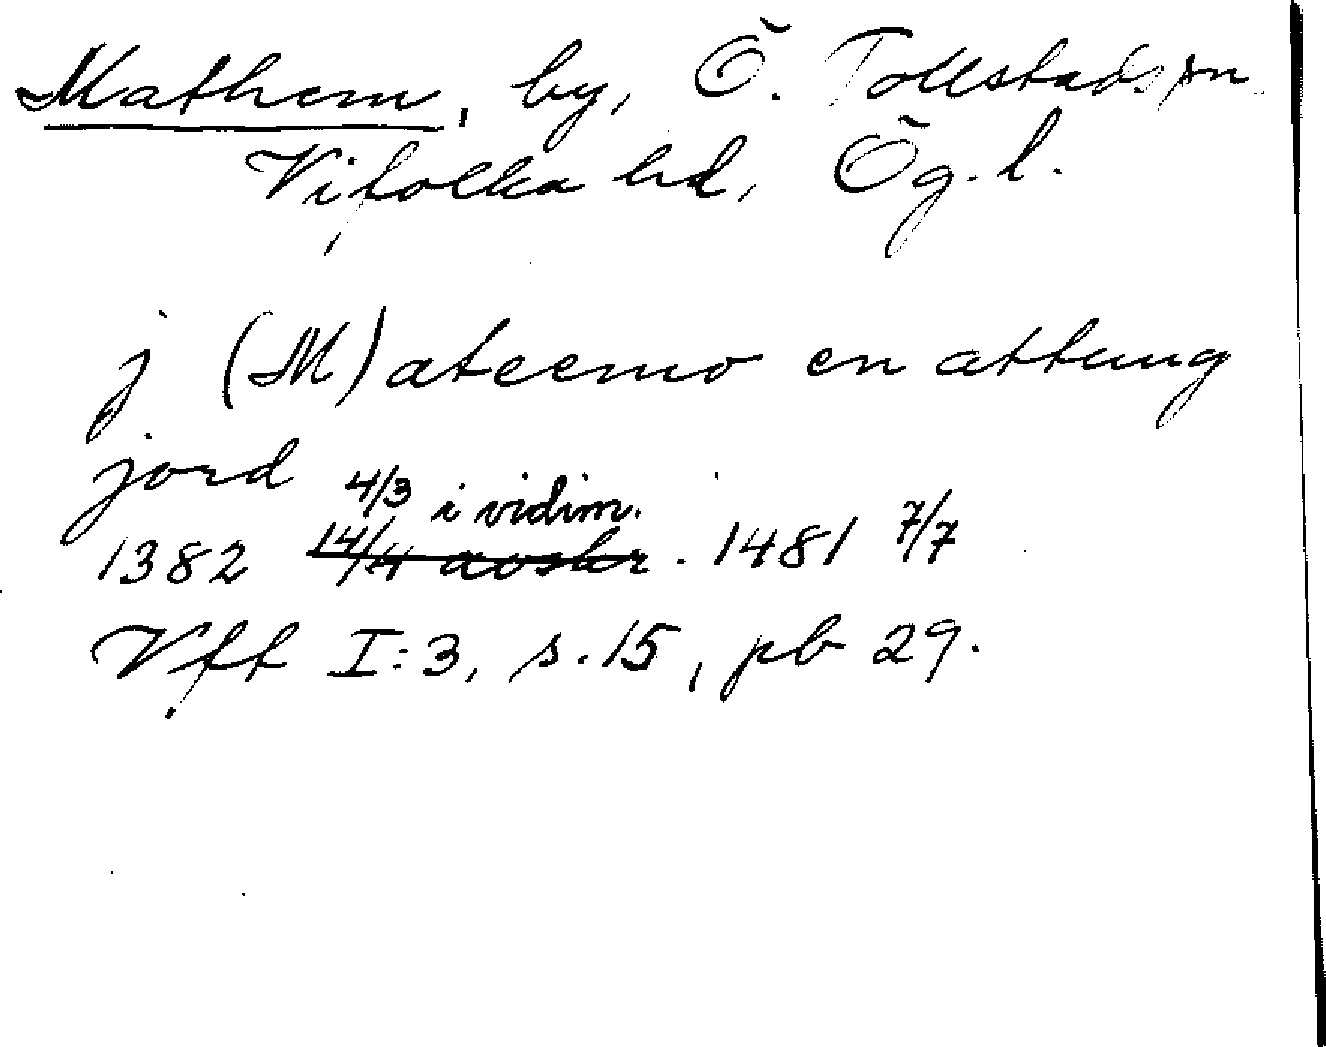 Mathem, by, Ö. Tollstads sn.
Vifolka hd, Ög. l.
j (M)ateemo en attung
jord
4/3 i vidim.
1382 14/4 avskr. 1481 7/7
Vff I:3, s. 15, pb 29.